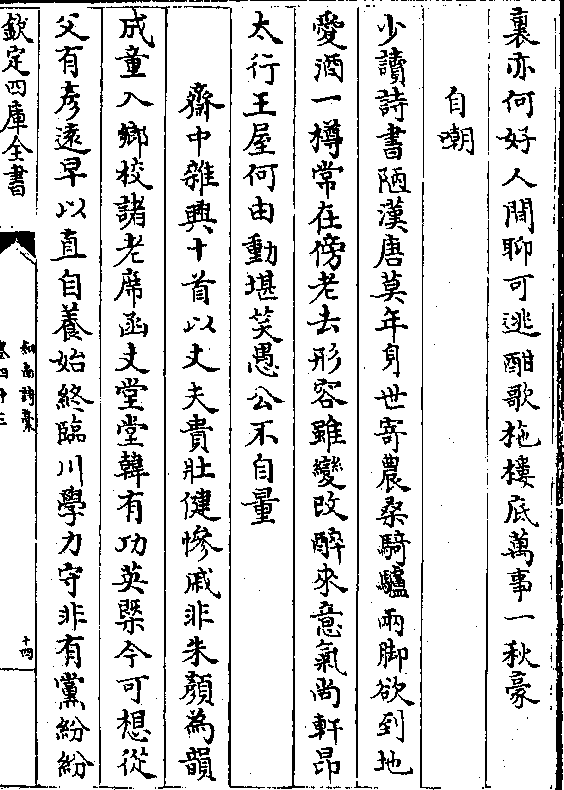 裏亦何好人間聊可逃酣歌柂樓底萬事一秋豪
自嘲
少讀詩書陋漢唐莫年身世寄農桑騎驢兩脚欲到地
愛酒一樽常在傍老去形容雖變改醉來意氣尚軒昂
太行王屋何由動堪笑愚公不自量
齋中雜興十首以丈夫貴壯健慘戚非朱顏為韻
成童入鄉校諸老席函丈堂堂韓有功英槩今可想從
父有彥遠早以直自養始終臨川學力守非有黨紛紛
欽定四庫全書
劒南詩藁
卷四十三
十四